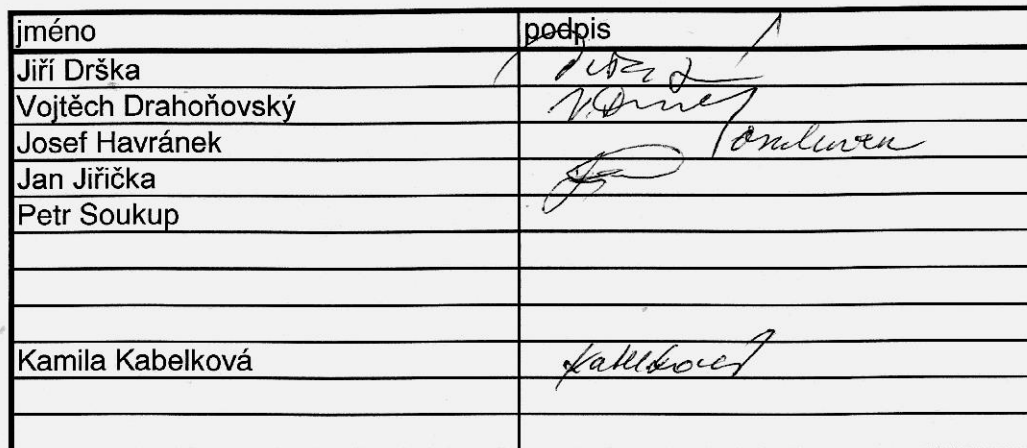 jméno podpis
Jiří Drška
Vojtěch Drahoňovský
Josef Havránek
Jan Jiřička
Petr Soukup
Kamila Kabelková Kabelková